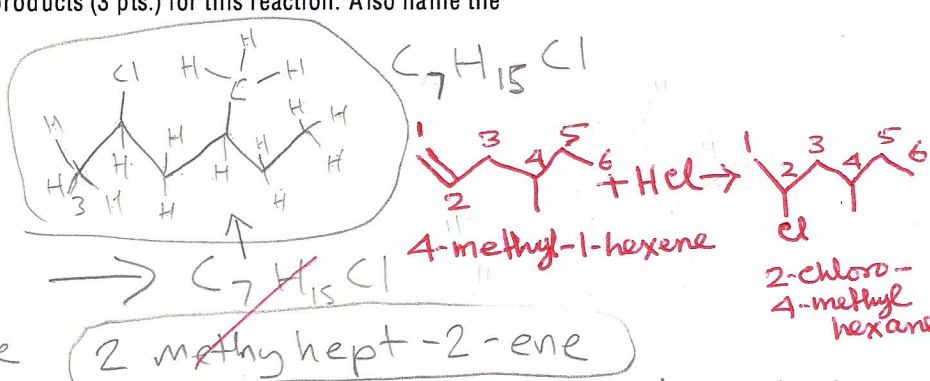 products (3 pts.) for this reaction. Also name the
H
H H
Cl C
H H H
H H
H H H
H H H
3 H H
C7H15Cl
1 3 5
4 6
2
+ HCl →
1 3 5
2 4 6
Cl
4-methyl-1-hexene
2-chloro-
4-methyl
hexane
→ C7H15Cl
2 methy hept-2-ene